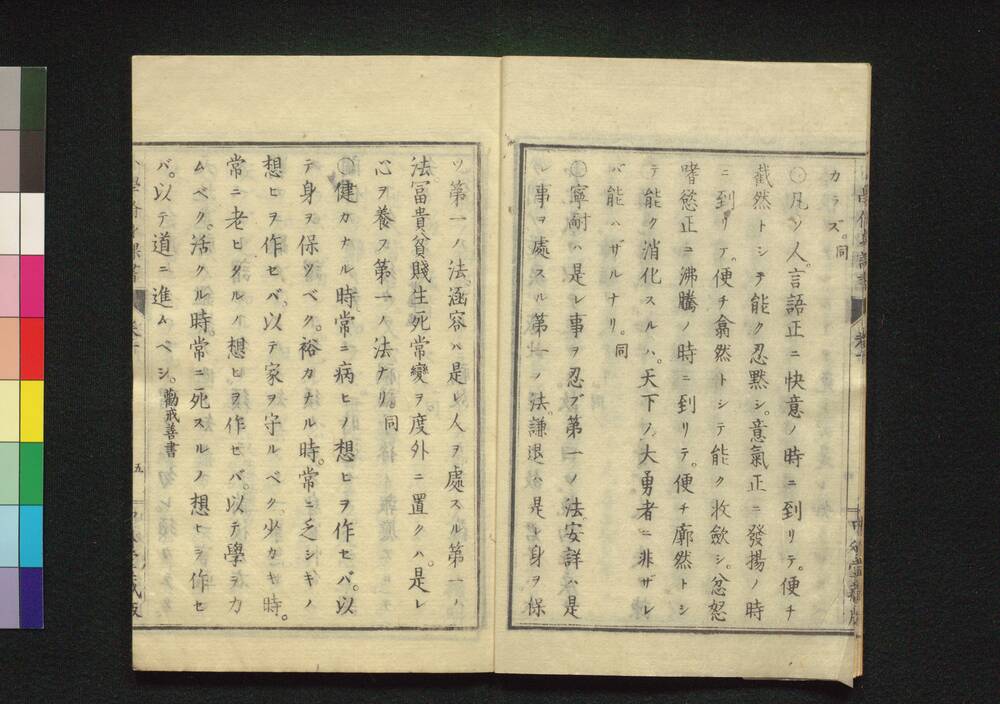 カラズ。同
〇凡ソ人。言語正ニ快意ノ時ニ到リテ。便チ
截然トシテ能ク忍黙シ。意氣正ニ發揚ノ時
ニ到リテ。便チ翕然トシテ能ク收斂シ。忿怒
嗜慾正ニ沸騰ノ時ニ到リテ。便チ廓然トシ
テ能ク消化スルハ。天下ノ大勇者ニ非ザレ
バ能ハザルナリ。同
〇寧耐ハ是レ事ヲ忍ブ第一ノ法安詳ハ是
レ事ヲ處スル第一ノ法。謙退ハ是レ身ヲ保
ツ第一ノ法。涵容ハ是レ人ヲ處スル第一ノ
法冨貴貧賤生死常變ヲ度外ニ置クハ。是レ
心ヲ養フ第一ノ法ナリ。同
〇健カナル時常ニ病ヒノ想ヒヲ作セバ。以
テ身ヲ保ツベク。裕カナル時。常ニ乏シキノ
想ヒヲ作セバ。以テ家ヲ守ルベク。少カキ時。
常ニ老ヒタルノ想ヒヲ作セバ。以テ學ヲカ
ムベク。活クル時。常ニ死スルノ想ヒヲ作セ
バ。以テ道ニ進ムベシ。勸戒善書
五